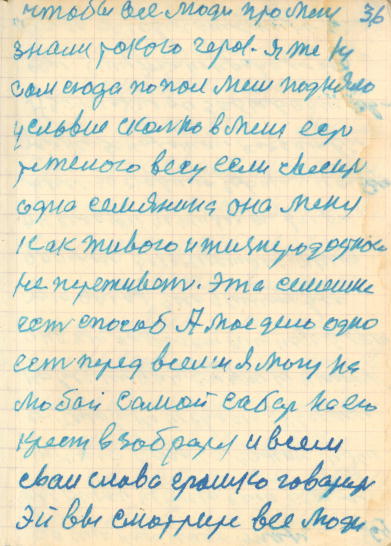 чтобы все люди про меня 36
знали такого героя. я же
сам сюда попал меня подняло
условие сколко в меня ест
тяжелого весу если
одна семянина она меня
как живого и жизнерадостного
не переживат. Эта семянина
ест способ А мое дело одно
ест перед всеми я могу на
любой самой сабор на его
крест взобраться и всем
сваи слова громко говарит
Эй вы смотрите все люди